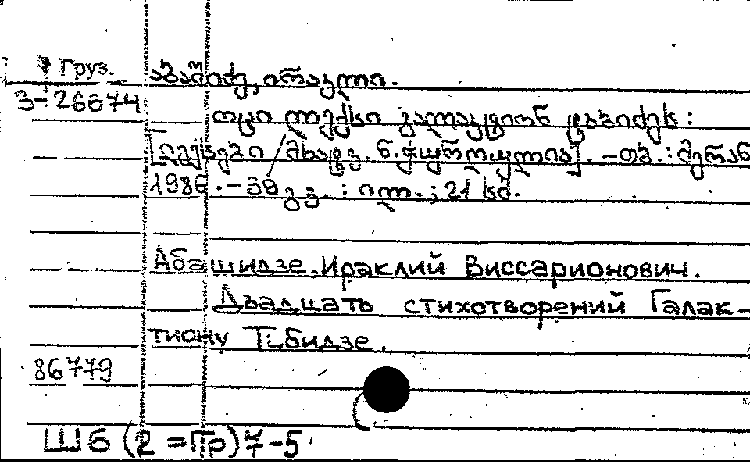 Груз.
აბაშიძე, ირაკლი.
3-26674
ოცი ლექსი გალაკტიონ ტაბიძეს :
[ლექსები მხატვ. ნ. . -თბ. : მერანი
1986. - 39 გვ. : ილ. ; 21 სმ.
Абашидзе, Ираклий Виссарионович.
Двадцать стихотворений Галак-
тиону Табидзе.
86779
Шб (2 =Гр) 7-5